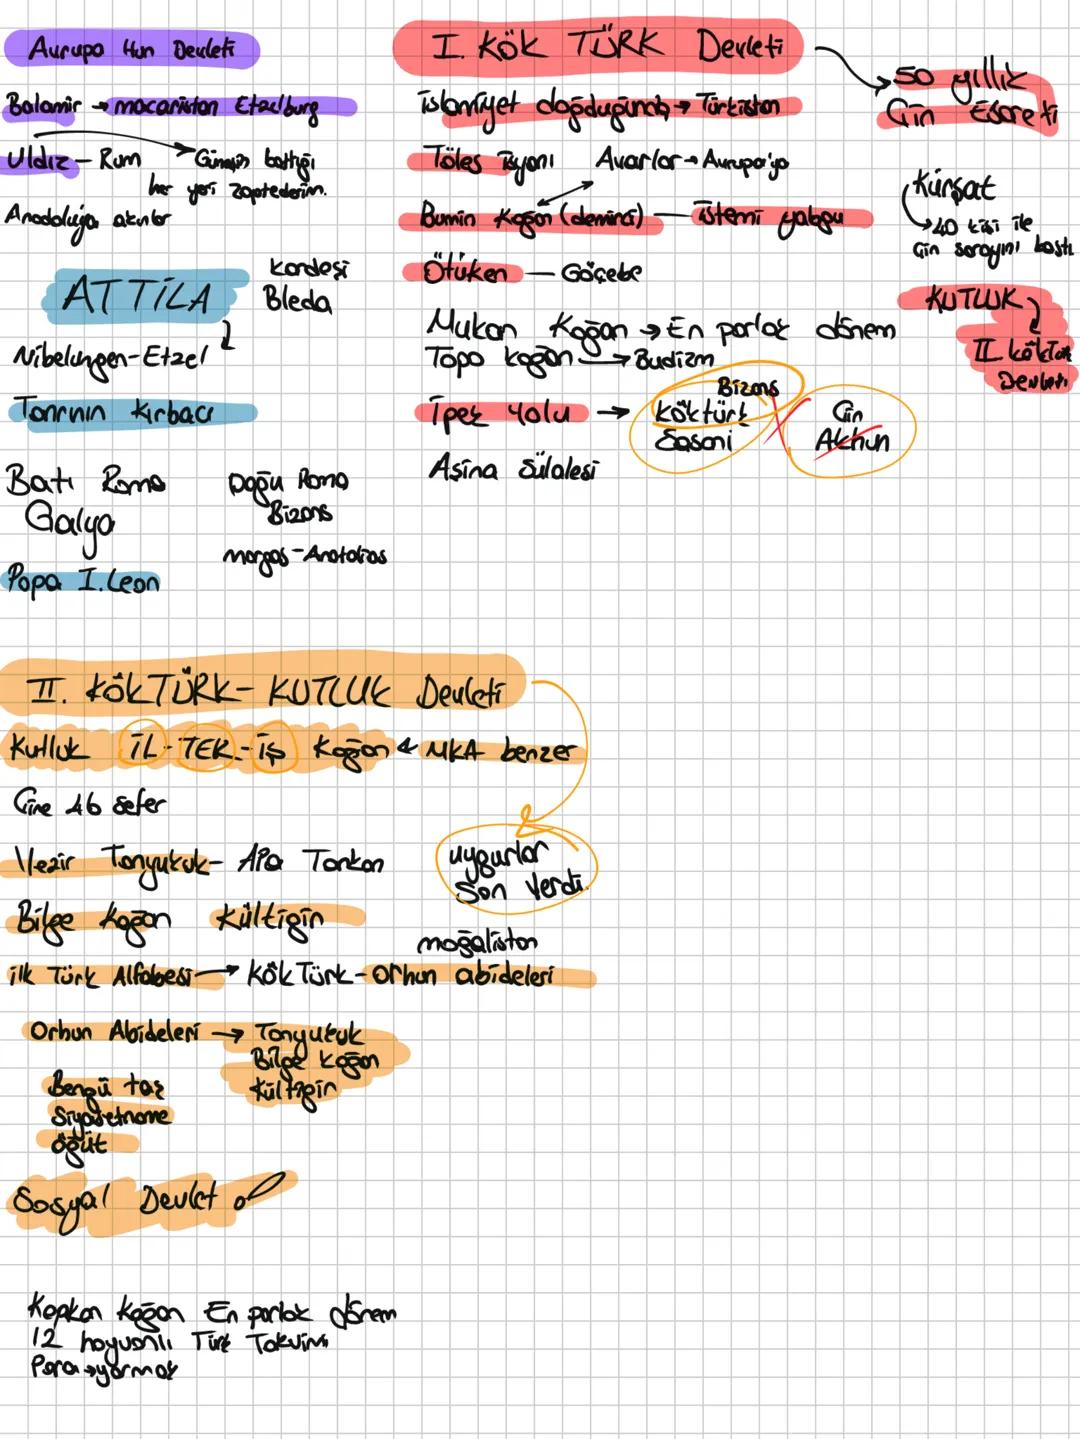 Avrupa Hun Devleti
Balamir → macaristan Etzelburg
Uldız - Rum → Güneşin battığı
her yeri zaptederim.
Anadoluya akınlar
ATTİLA
kardeşi
Bleda
Nibelungen-Etzel
Tanrının kırbacı
Batı Roma
Galya
Doğu Roma
Bizans
margos - Anatolios
Popa I. Leon
I. KÖK TÜRK Devleti
50 yıllık
Çin Esareti
islamiyet doğduğunda → Türkistan
Töles isyanı
Avarlar → Avrupa'ya
Bumin Kağan (demirci) — istemi yabgu
Ötüken — Göçebe
Mukan Kağan → En parlak dönem
Tapo kağan → Budizm
ipek yolu →
Bizans
köktürk
Sasani
Çin
Akhun
Aşina Sülalesi
Kürşat
→ 40 kişi ile
Çin sarayını bastı
KUTLUK
II. kökTürk
Devleti
II. KÖKTÜRK - KUTLUK Devleti
Kutluk İL-TEK-iş Kağan ← MKA benzer
Çine 46 sefer
Vezir Tonyukuk - APA Tarkan
uygurlar
son verdi.
Bilge Kağan Kültigin
moğalistan
ilk Türk Alfabesi → KökTürk - orhun abideleri
Orhun Abideleri → Tonyukuk
Bilge Kağan
Kültigin
Bengü taş
Siyasetname
öğüt
Sosyal Devlet
Kapkan Kağan En parlak dönem
12 hayvanlı Türk Takvimi
Para → yarmak